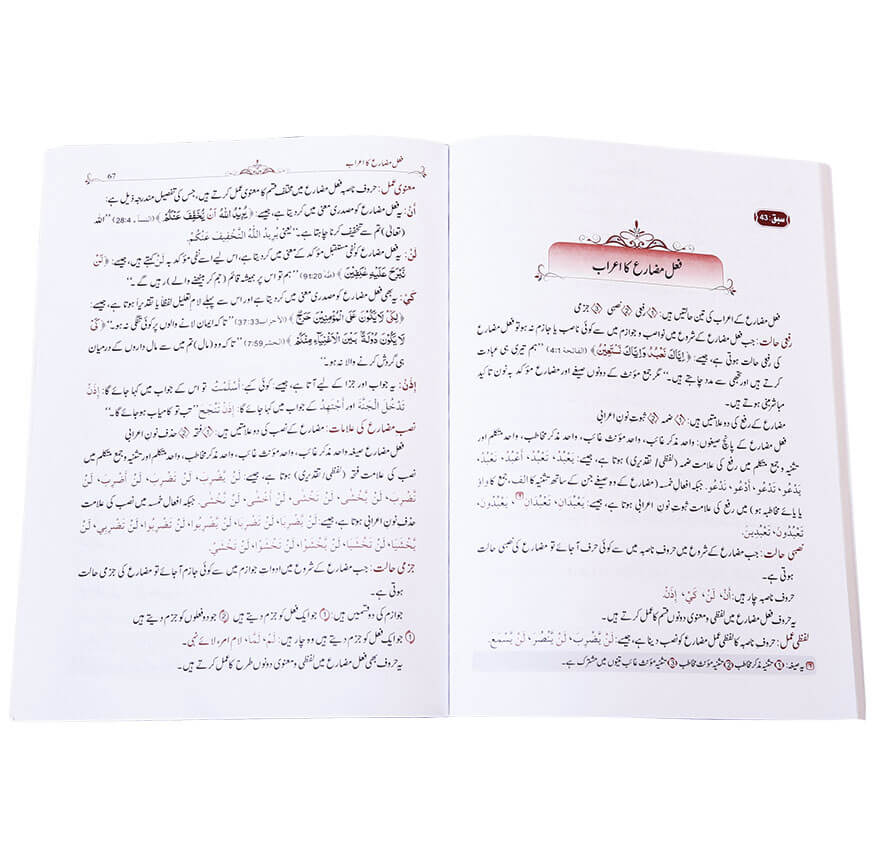 سبق: 43
فعل مضارع کا اعراب
فعل مضارع کے اعراب کی تین حالتیں ہیں: ① رفعی ② نصبی ③ جزمی
رفعی حالت: جب مضارع کے شروع میں نواصب و جوازم میں سے کوئی ناصب یا جازم نہ ہو تو فعل مضارع
کی رفعی حالت ہوتی ہے، جیسے: ﴿إِيَّاكَ نَعْبُدُ وَإِيَّاكَ نَسْتَعِينُ﴾ (الفاتحة 4:1) ’’ہم تیری ہی عبادت
کرتے ہیں اور تجھی سے مدد چاہتے ہیں۔‘‘ مگر جمع مؤنث کے دونوں صیغے اور مضارع مؤکد بہ نون تاکید
مباشر مبنی ہوتے ہیں۔
مضارع کے رفع کی دو علامتیں ہیں: ① ضمہ ② ثبوت نون اعرابی
فعل مضارع کے پانچ صیغوں: واحد مذکر غائب، واحد مؤنث غائب، واحد مذکر مخاطب، واحد متکلم اور
تثنیہ و جمع متکلم میں رفع کی علامت ضمہ (لفظی/ تقدیری) ہوتا ہے، جیسے: يَعْبُدُ، تَعْبُدُ، أَعْبُدُ، نَعْبُدُ،
يَدْعُو، تَدْعُو، أَدْعُو، نَدْعُو. جبکہ افعال خمسہ (مضارع کے وہ صیغے جن کے ساتھ تثنیہ کا الف، جمع کا واؤ
یا یائے مخاطبہ ہو) میں رفع کی علامت ثبوت نون اعرابی ہوتا ہے، جیسے: يَعْبُدَانِ، تَعْبُدَانِ، يَعْبُدُونَ،
تَعْبُدُونَ، تَعْبُدِينَ.
نصبی حالت: جب مضارع کے شروع میں حروف ناصبہ میں سے کوئی حرف آ جائے تو مضارع کی نصبی حالت
ہوتی ہے۔
حروف ناصبہ چار ہیں: أَنْ، لَنْ، كَيْ، إِذَنْ.
یہ حروف فعل مضارع میں لفظی و معنوی دونوں قسم کا عمل کرتے ہیں۔
لفظی عمل: حروف ناصبہ کا لفظی عمل مضارع کو نصب دینا ہے، جیسے: لَنْ يَّضْرِبَ، لَنْ يَّنْصُرَ، لَنْ يَّسْمَعَ.
یہ صیغہ: ① تثنیہ مذکر مخاطب ② تثنیہ مؤنث مخاطب ③ تثنیہ مؤنث غائب تینوں میں مشترک ہے۔
فعل مضارع کا اعراب
67
معنوی عمل: حروف ناصبہ فعل مضارع میں مختلف قسم کا معنوی عمل کرتے ہیں، جس کی تفصیل مندرجہ ذیل ہے:
أَنْ: یہ فعل مضارع کو مصدری معنی میں کر دیتا ہے، جیسے: ﴿يُرِيدُ اللّٰهُ أَنْ يُّخَفِّفَ عَنْكُمْ﴾ (النسآء 28:4) ’’اللہ
(تعالیٰ) تم سے تخفیف کرنا چاہتا ہے۔‘‘ یعنی يُرِيدُ اللّٰهُ التَّخْفِيفَ عَنْكُمْ.
لَنْ: یہ فعل مضارع کو نفی مستقبل مؤکد کے معنی میں کر دیتا ہے، اس لیے اسے نفی مؤکد بہ لَنْ کہتے ہیں، جیسے: ﴿لَنْ
نَّبْرَحَ عَلَيْهِ عٰكِفِينَ﴾ (طٰهٰ 91:20) ’’ہم تو اس پر ہمیشہ قائم (جم کر بیٹھنے والے) رہیں گے۔‘‘
كَيْ: یہ بھی فعل مضارع کو مصدری معنی میں کر دیتا ہے اور اس سے پہلے لام تعلیل لفظاً یا تقدیراً ہوتا ہے، جیسے:
﴿لِكَيْ لَا يَكُونَ عَلَى الْمُؤْمِنِينَ حَرَجٌ﴾ (الأحزاب 37:33) ’’تاکہ ایمان لانے والوں پر کوئی تنگی نہ ہو۔‘‘ ﴿كَيْ
لَا يَكُونَ دُولَةً بَيْنَ الْأَغْنِيَآءِ مِنْكُمْ﴾ (الحشر 7:59) ’’تاکہ وہ (مال) تم میں سے مال داروں کے درمیان
ہی گردش کرنے والا نہ ہو۔‘‘
إِذَنْ: یہ جواب اور جزا کے لیے آتا ہے، جیسے: کوئی کہے: أَسْلَمْتُ تو اس کے جواب میں کہا جائے گا: إِذَنْ
تَدْخُلَ الْجَنَّةَ اور أَجْتَهِدُ کے جواب میں کہا جائے گا: إِذَنْ تَنْجَحَ ’’تب تو کامیاب ہو جائے گا۔‘‘
نصب مضارع کی علامات: مضارع کے نصب کی دو علامتیں ہیں: ① فتحہ ② حذف نون اعرابی
فعل مضارع صیغہ واحد مذکر غائب، واحد مؤنث غائب، واحد مذکر مخاطب، واحد متکلم اور تثنیہ و جمع متکلم میں
نصب کی علامت فتحہ (لفظی/ تقدیری) ہوتا ہے، جیسے: لَنْ يَّضْرِبَ، لَنْ تَضْرِبَ، لَنْ أَضْرِبَ، لَنْ
نَّضْرِبَ، لَنْ يَّخْشٰى، لَنْ تَخْشٰى، لَنْ أَخْشٰى، لَنْ نَّخْشٰى. جبکہ افعال خمسہ میں نصب کی علامت
حذف نون اعرابی ہوتا ہے، جیسے: لَنْ يَّضْرِبَا، لَنْ تَضْرِبَا، لَنْ يَّضْرِبُوا، لَنْ تَضْرِبُوا، لَنْ تَضْرِبِي، لَنْ
يَّخْشَيَا، لَنْ تَخْشَيَا، لَنْ يَّخْشَوْا، لَنْ تَخْشَوْا، لَنْ تَخْشَيْ.
جزمی حالت: جب مضارع کے شروع میں ادوات جوازم میں سے کوئی جازم آ جائے تو مضارع کی جزمی حالت
ہوتی ہے۔
جوازم کی دو قسمیں ہیں: ① جو ایک فعل کو جزم دیتے ہیں ② جو دو فعلوں کو جزم دیتے ہیں
① جو ایک فعل کو جزم دیتے ہیں وہ چار ہیں: لَمْ، لَمَّا، لام امر، لائے نہی۔
یہ حروف بھی فعل مضارع میں لفظی و معنوی دونوں طرح کا عمل کرتے ہیں۔